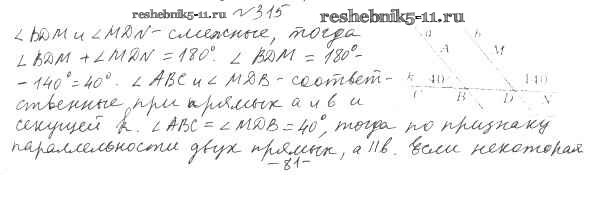 reshebnik5-11.ru №315 reshebnik5-11.ru
∠BDM и ∠MDN - смежные, тогда
∠BDM + ∠MDN = 180°. ∠BDM = 180° -
- 140° = 40°. ∠ABC и ∠MDB - соответ-
ственные, при прямых a и b и
секущей k. ∠ABC = ∠MDB = 40°, тогда по признаку
параллельности двух прямых, a II b. Если некоторая
a b
A M
k 40 140
C B D N
-81-